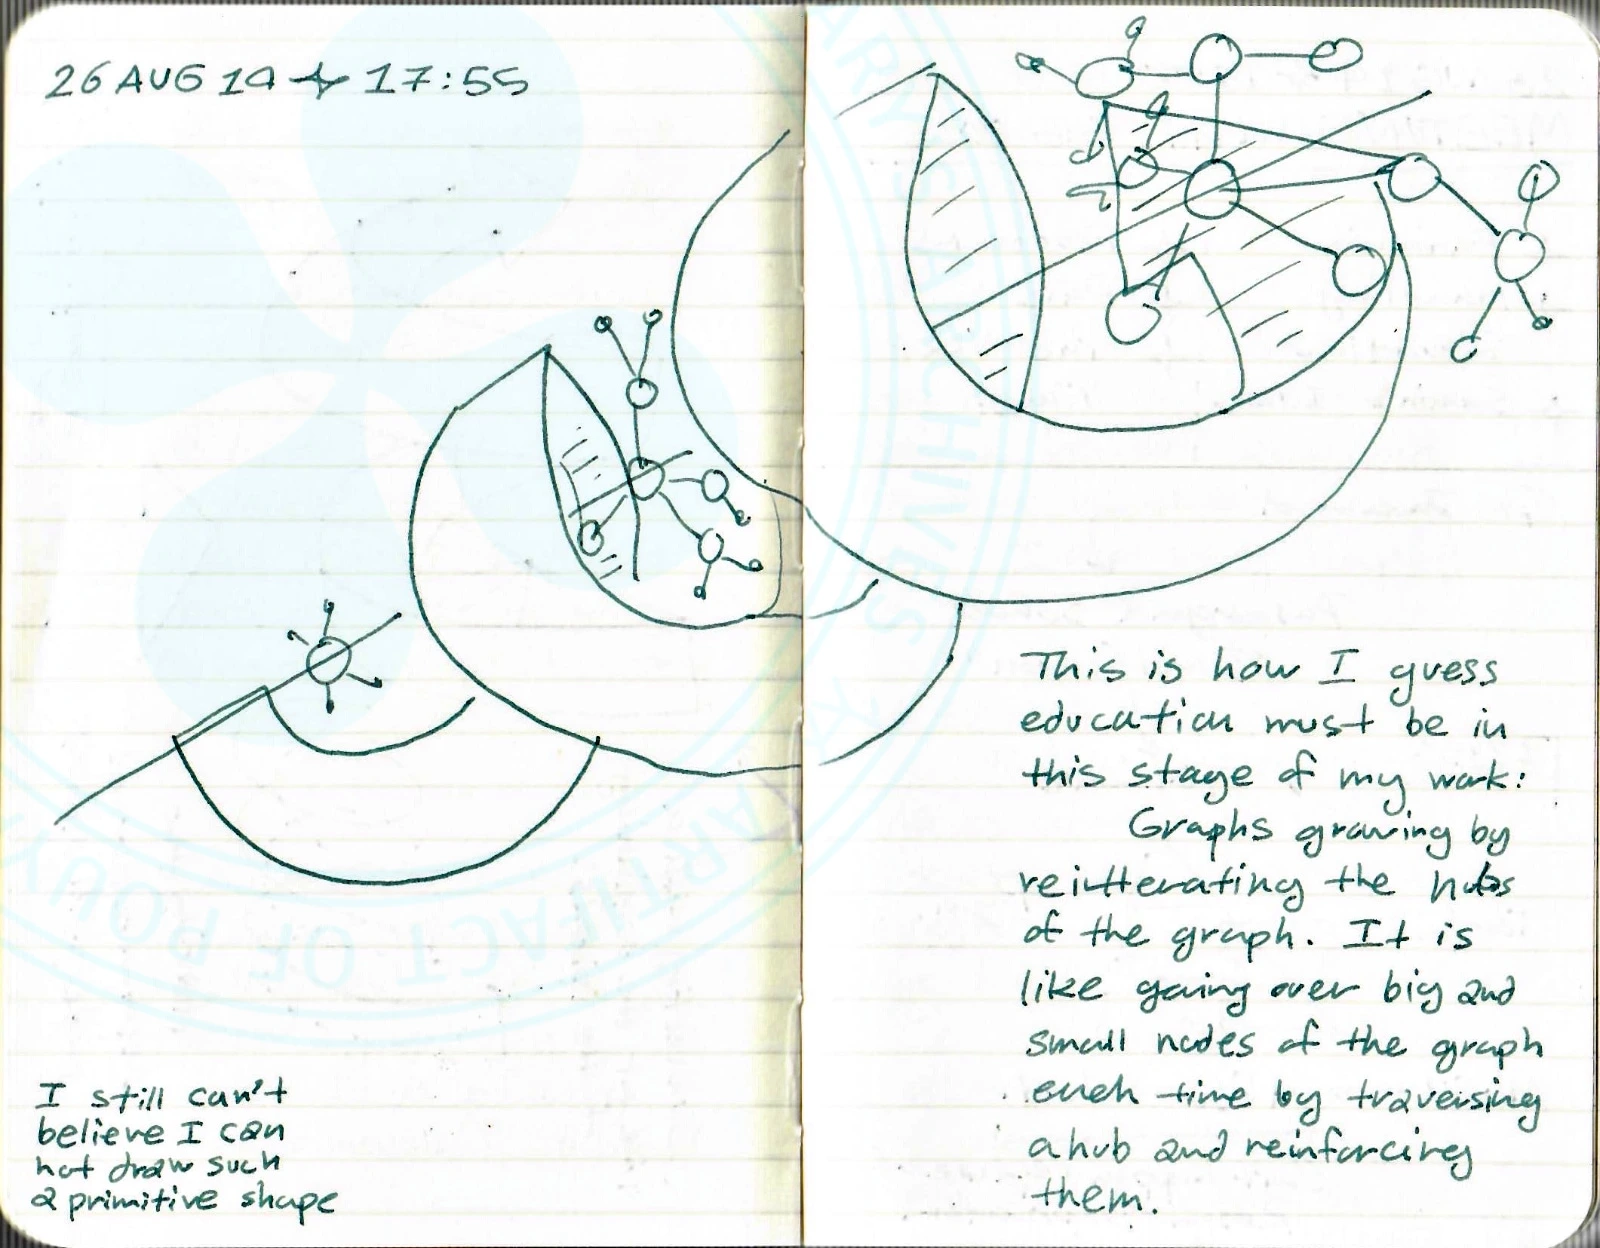 26 AUG 19 17:55
I still can't
believe I can
not draw such
a primitive shape
This is how I guess
education must be in
this stage of my work:
Graphs growing by
reitterating the hubs
of the graph. It is
like going over big and
small nodes of the graph
each time by traversing
a hub and reinforcing
them.
ARTIFACT OF POUY
ARYS ARCHIVES